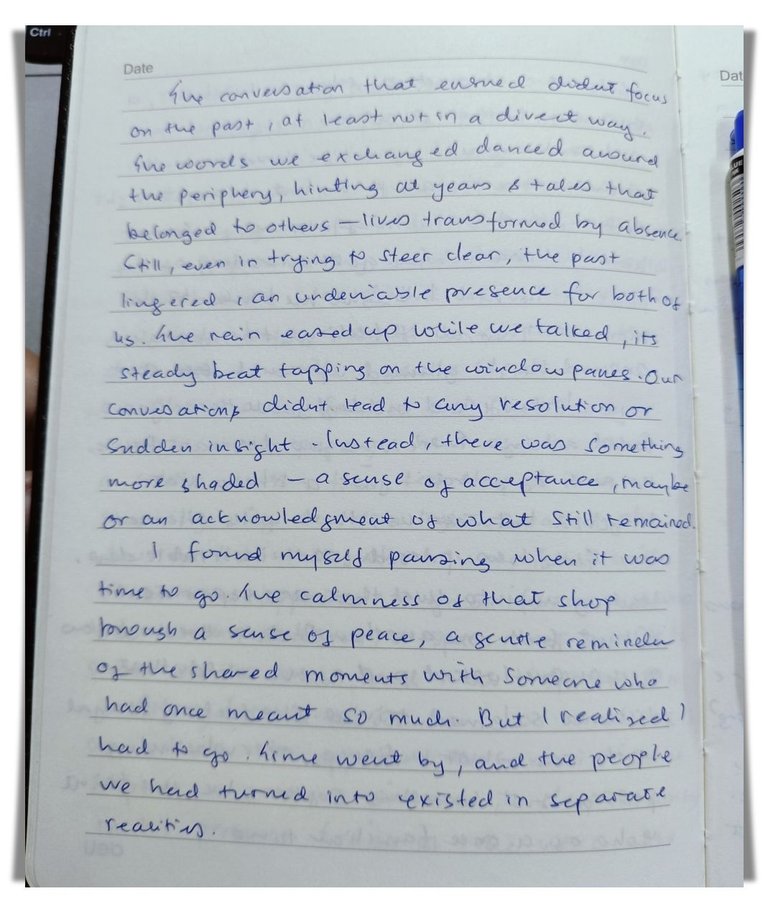 Ctrl
Date
Dat
The conversation that ensued didnt focus
on the past, at least not in a direct way.
The words we exchanged danced around
the periphery, hinting at years & tales that
belonged to others – lives transformed by absence
Still, even in trying to steer clear, the past
lingered, an undeniable presence for both of
us. The rain eased up while we talked, its
steady beat tapping on the window panes. Our
conversations didnt lead to any resolution or
sudden insight. Instead, there was something
more shaded – a sense of acceptance, maybe
or an acknowledgment of what still remained.
I found myself pausing when it was
time to go. The calmness of that shop
brough a sense of peace, a gentle reminder
of the shared moments with someone who
had once meant so much. But I realized I
had to go. Time went by, and the people
we had turned into existed in separate
realities.